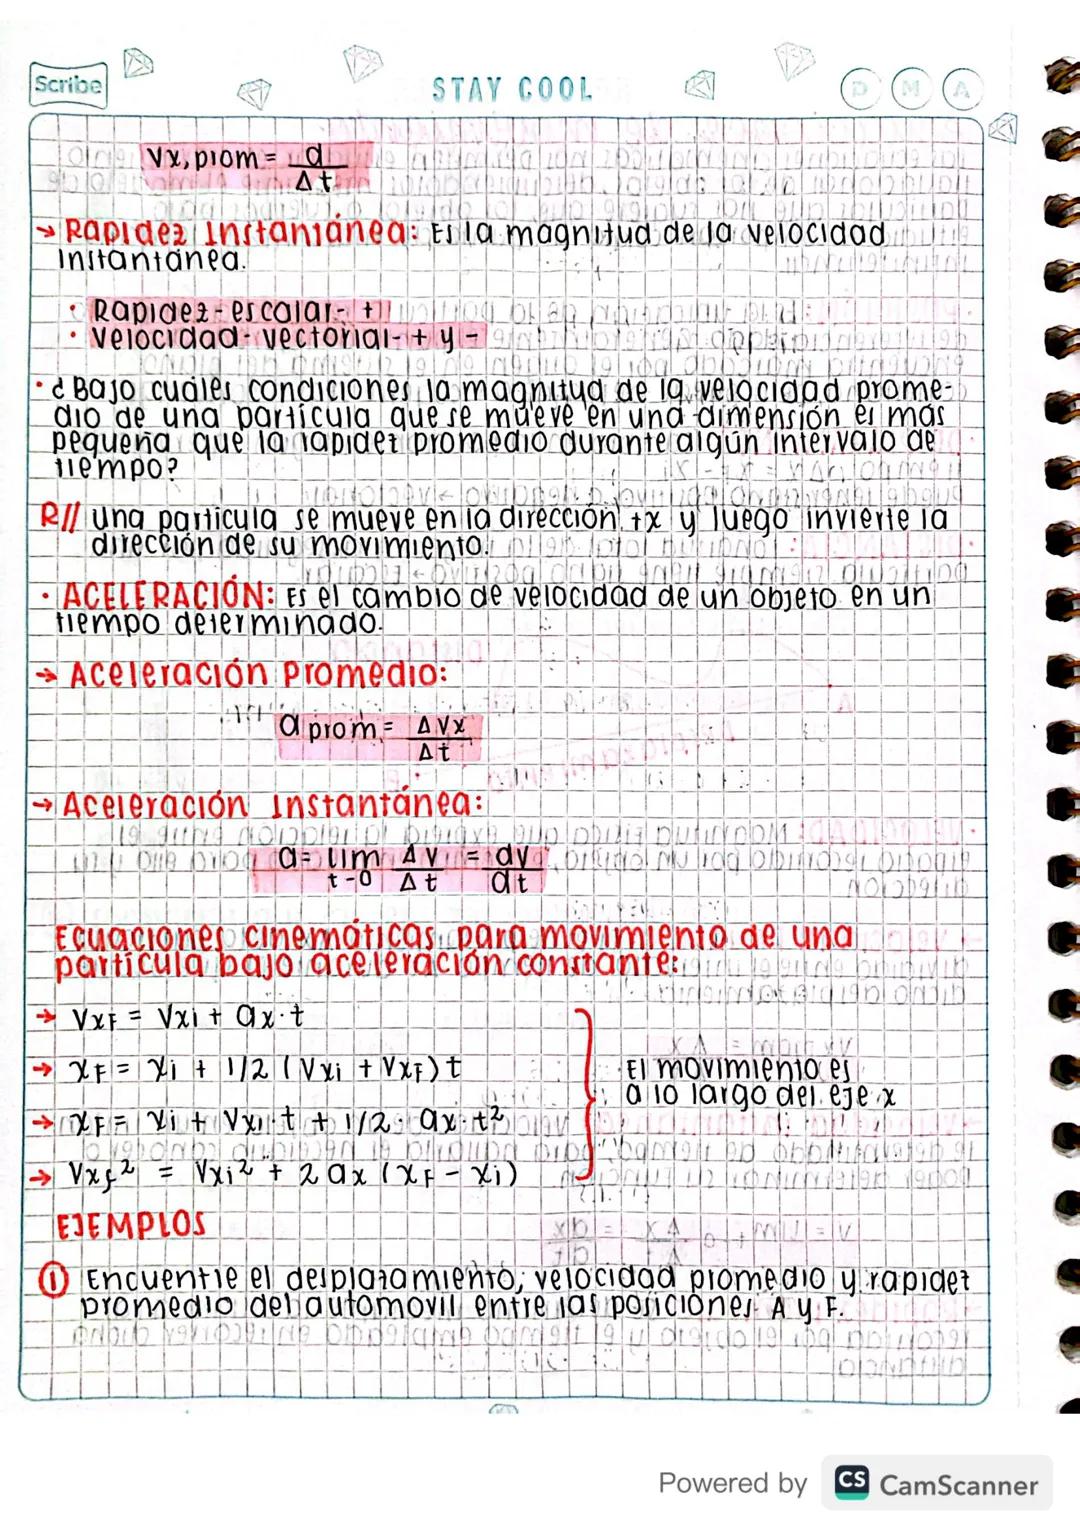 Scribe
STAY COOL
D M A
Vx, prom = d
Δt
→ Rapidez Instantánea: Es la magnitud de la velocidad
instantánea.
· Rapidez - escalar - +
· Velocidad - vectorial - + y -
· ¿Bajo cuáles condiciones la magnitud de la velocidad prome-
dio de una partícula que se mueve en una dimensión es más
pequeña que la rapidez promedio durante algún intervalo de
tiempo?
R// una partícula se mueve en la dirección +x y luego invierte la
dirección de su movimiento.
· ACELERACIÓN: Es el cambio de velocidad de un objeto en un
tiempo determinado.
→ Aceleración Promedio:
a prom = ΔVx
Δt
→ Aceleración Instantánea:
a = lim ΔV = dv
t-0 Δt dt
Ecuaciones cinemáticas para movimiento de una
partícula bajo aceleración constante:
→ VxF = Vxi + ax·t
→ xF = xi + 1/2 (Vxi + VxF) t
→ xF = xi + Vxi·t + 1/2·ax·t²
→ Vxf² = Vxi² + 2ax (xF - xi)
El movimiento es
a lo largo del eje x
EJEMPLOS
① Encuentre el desplazamiento, velocidad promedio y rapidez
promedio del automovil entre las posiciones A y F.
Powered by CS CamScanner